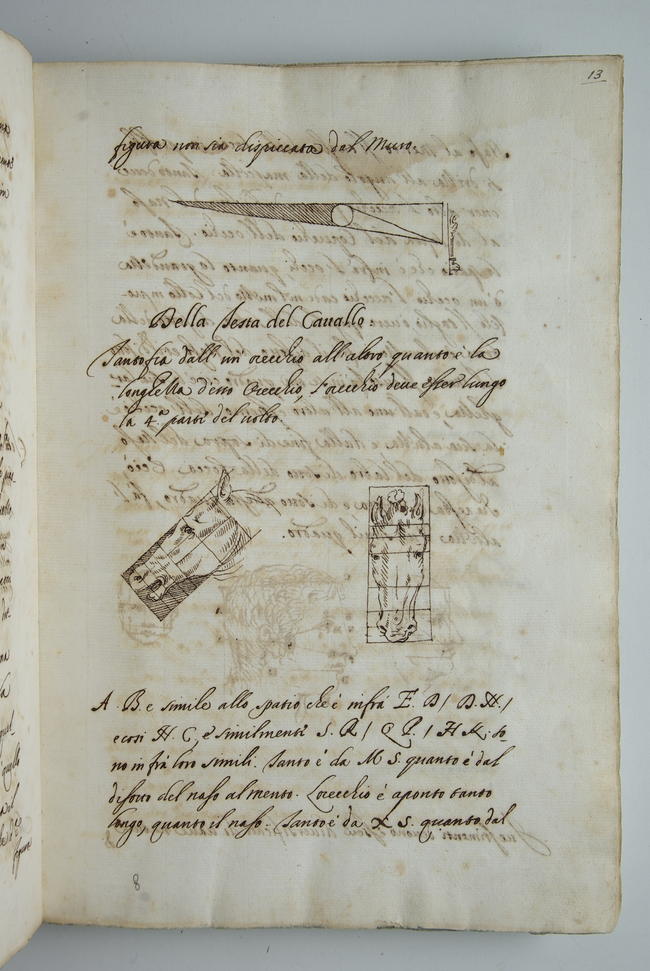 13
figura non sia dispiccata dal Muro.
Della Testa del Cavallo
Tanto sia dall' un' orecchio all' altro quanto è la
longhezza detto Orecchio, l'orecchio deve esser lungo
la 4.ª parte del volto.
A B. e simile allo spatio che è infra E. D / D. H. /
e cosi H. C, e similmente S. R / Q P. / H K. so
no infra loro simili. Tanto è da M S. quanto è dal
disotto del naso al mento. L'orecchio è aponto tanto
longo, quanto il naso. Tanto è da X S. quanto dal
8